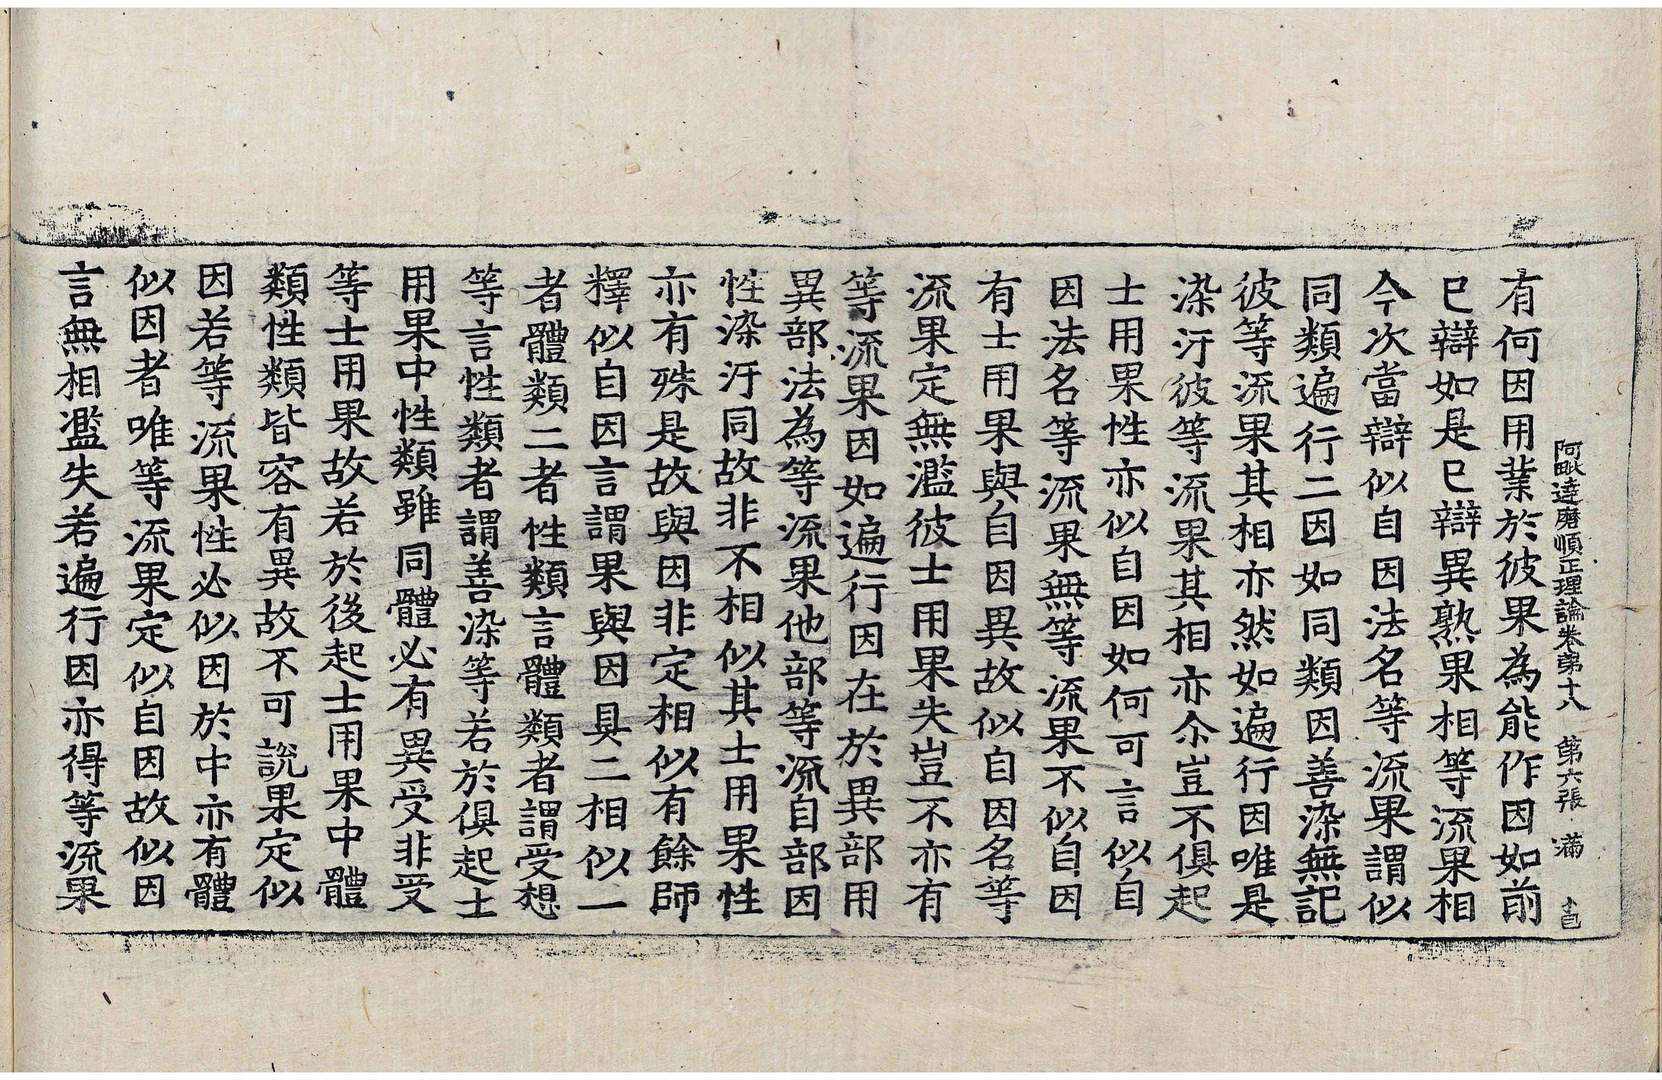 阿毗達磨順正理論卷第十八　第六張　滿
有何因用業於彼果為能作因如前
已辯如是已辯異熟果相等流果相
今次當辯似自因法名等流果謂似
同類遍行二因如同類因善染無記
彼等流果其相亦然如遍行因唯是
染汙彼等流果其相亦尒豈不俱起
士用果性亦似自因如何可言似自
因法名等流果無等流果不似自因
有士用果與自因異故似自因名等
流果定無濫彼士用果失豈不亦有
等流果因如遍行因在於異部用
異部法為等流果他部等流自部因
性染汙同故非不相似其士用果性
亦有殊是故與因非定相似有餘師
釋似自因言謂果與因具二相似一
者體類二者性類言體類者謂受想
等言性類者謂善染等若於俱起士
用果中性類雖同體必有異受非受
等士用果故若於後起士用果中體
類性類皆容有異故不可說果定似
因若等流果性必似因於中亦有體
似因者唯等流果定似自因故似因
言無相濫失若遍行因亦得等流果